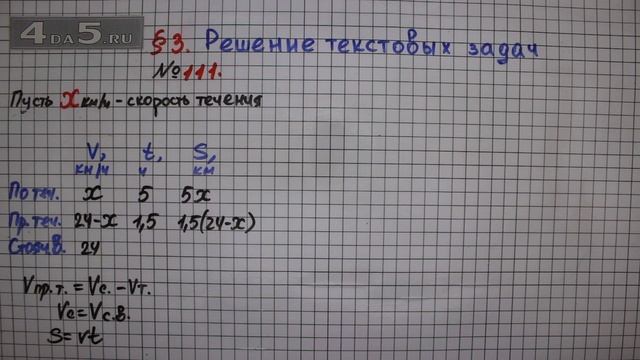 4DA5.RU
§3. Решение текстовых задач
№111.
Пусть x км/ч - скорость течения
V, t, S,
км/ч ч км
По теч. x 5 5x
Пр. теч. 24-x 1,5 1,5(24-x)
Стояч.в. 24
Vпр.т. = Vс. - Vт.
Vс = Vс.в.
S = vt